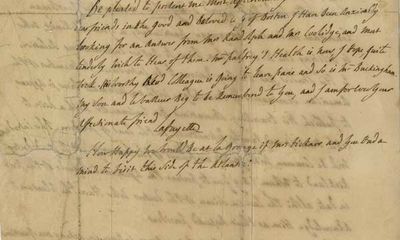 Be pleased to present me most
our friends in the good and beloved city of Boston I Have Been Anxiously
looking for an Answer from Mrs and Mrs Coolidge, and most
tenderly wish to Hear of them. Mr Health is now I Hope quite
Good. His worthy Colleague is going to leave and so is Mr Buckingham.
My Son and Beg to be Remembered to You, and I am for ever Your
affectionate friend
Lafayette
How Happy we would Be at La Grange if Mrs and You Had a
mind to Visit this Side of the Atlantic